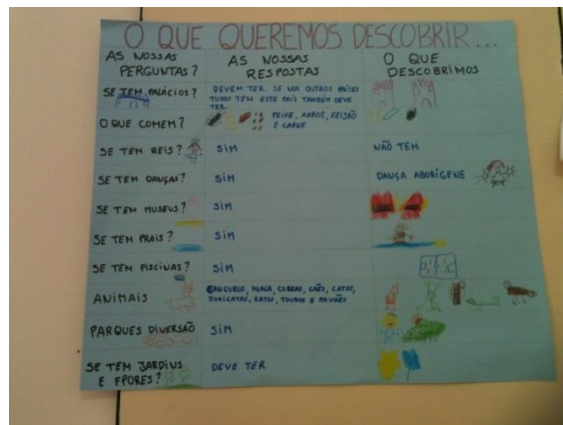 O QUE QUEREMOS DESCOBRIR...
AS NOSSAS
PERGUNTAS?
AS NOSSAS
RESPOSTAS
O QUE
DESCOBRIMOS
SE TEM PALÁCIOS?
DEVEM TER. SE NOS OUTROS PAÍSES
TODOS TEM ESTE PAIS TAMBÉM DEVE
TER.
O QUE COMEM?
PEIXE, ARROZ, FEIJÃO
E CARNE
SE TEM REIS?
SIM
NÃO TEM
SE TEM DANÇAS?
SIM
DANÇA ABORÍGENE
SE TEM MUSEUS?
SIM
SE TEM PRAIS?
SIM
SE TEM PISCINAS?
SIM
ANIMAIS
CANGURUS, KOALA, COBRAS, CÃES, GATOS,
SURICATAS, RATOS, TOUROS E PAVÕES
PARQUES DIVERSÃO
SIM
SE TEM JARDINS
E FPORES?
DEVE TER